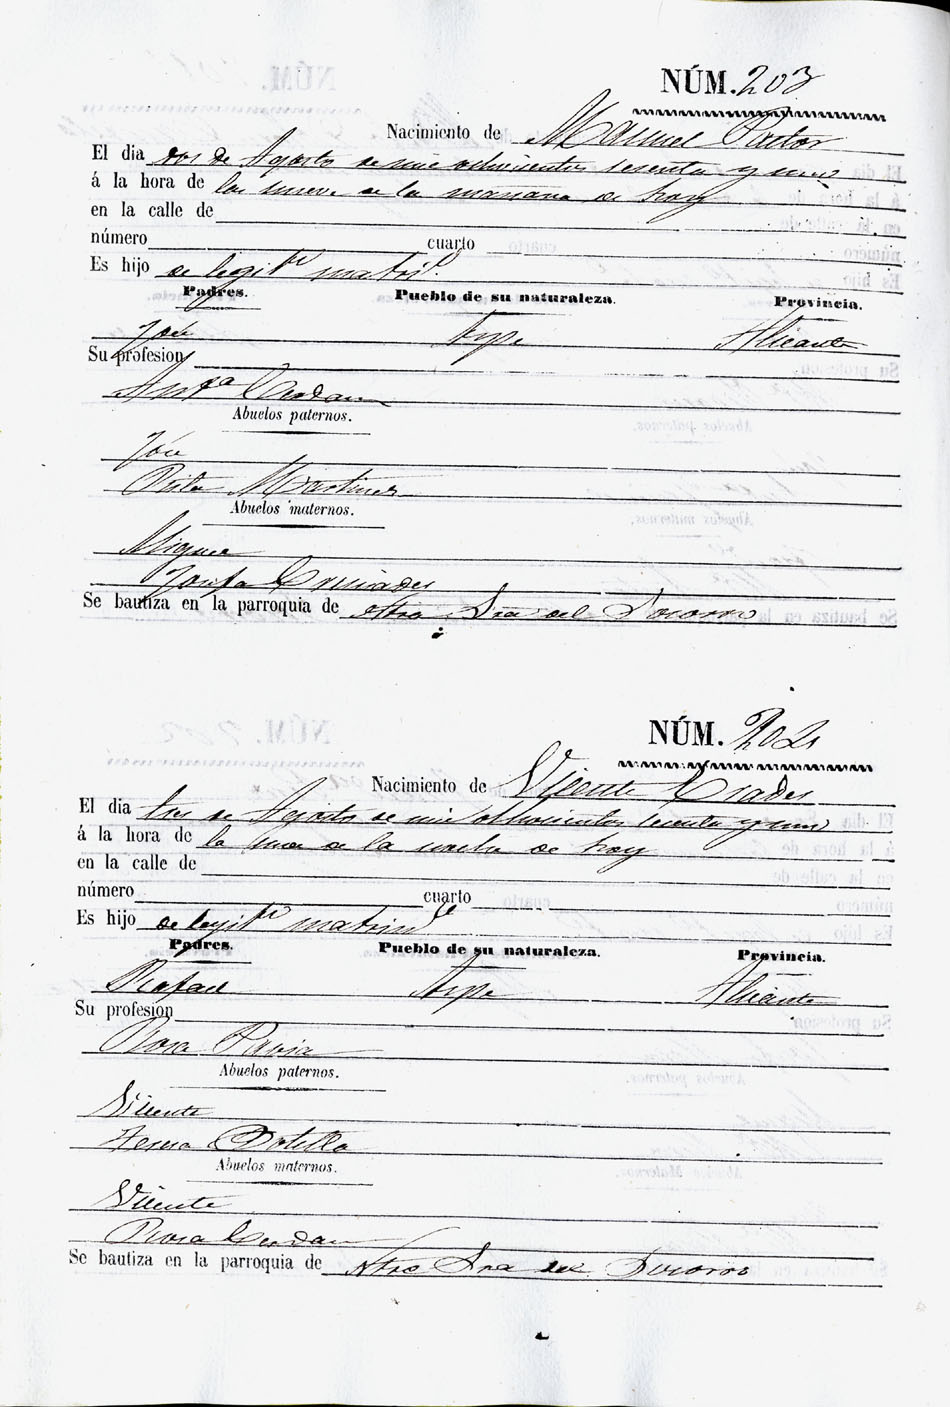 NÚM. 203
Nacimiento de Manuel Pastor
El dia dos de Agosto de mil ochocientos sesenta y uno
á la hora de las nueve de la mañana de hoy
en la calle de
número cuarto
Es hijo de legitᵐᵒ matrilº
Padres. Pueblo de su naturaleza. Provincia.
José Aspe Alicante
Su profesion
Antᵃ Cerdan
Abuelos paternos.
José
Rita Martinez
Abuelos maternos.
Miguel
Josefa Cremades
Se bautiza en la parroquia de Ntra Sra del Socorro
NÚM. 204
Nacimiento de Vicente Prades
El dia tres de Agosto de mil ochocientos sesenta y uno
á la hora de la una de la noche de hoy
en la calle de
número cuarto
Es hijo de legitᵐᵒ matrimº
Padres. Pueblo de su naturaleza. Provincia.
Rafael Aspe Alicante
Su profesion
Rosa Pavia
Abuelos paternos.
Vicente
Teresa Botella
Abuelos maternos.
Vicente
Rosa Cerdan
Se bautiza en la parroquia de Ntra Sra del Socorro